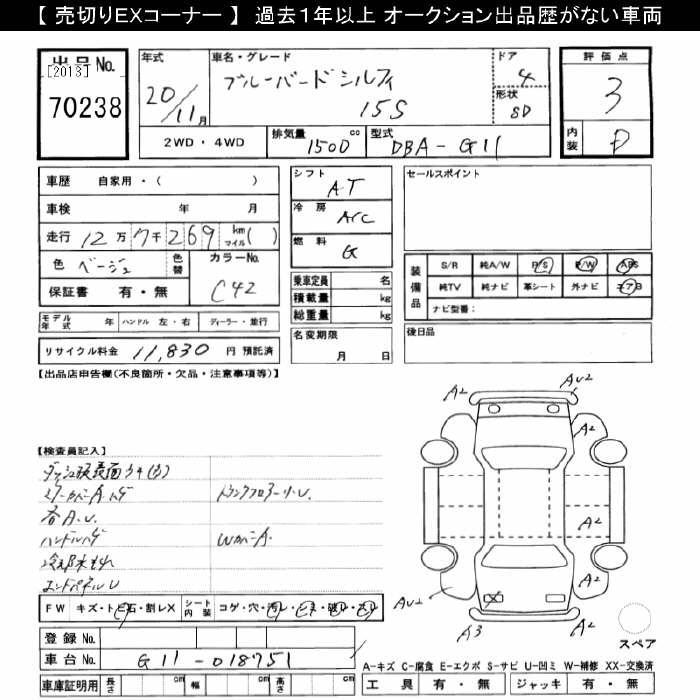 【 売切りEXコーナー 】 過去1年以上 オークション出品歴がない車両
出品No.
[2013]
70238
年式
20/11月
車名・グレード
ブルーバードシルフィ
15S
ドア
4
形状
SD
2WD・4WD
排気量
1500
cc
型式
DBA-G11
評価点
3
内装
D
車歴 自家用・( )
車検 年 月
走行 12万7千269 km マイル( )
色 ベージュ
色替
カラーNo.
C42
保証書 有・無
シフト
AT
冷房
A/C
燃料
G
乗車定員 名
積載量 kg
総重量 kg
セールスポイント
装備品
S/R 純A/W P/S P/W ABS
純TV 純ナビ 革シート 外ナビ エアB
ナビ型番:
モデル年式 年 ハンドル 左・右 ディーラー・並行
リサイクル料金 11,830 円 預託済
名変期限
月 日
後日品
【出品店申告欄(不良箇所・欠品・注意事項等)】
A2
AU2
A2
A2
A2
A2
AU2
A3
【検査員記入】
各A.U.
ハンドルハゲ
エンドパネルU
トランクフロアーサ.U.
WカバーA.
FW キズ・トビ石・割レX シート内装 コゲ・穴・汚レ・
登録No.
車台No. G11-018751
車庫証明用 長さ cm 幅 cm 高さ cm
スペア
A-キズ C-腐食 E-エクボ S-サビ U-凹ミ W-補修 XX-交換済
工具 有・無 ジャッキ 有・無